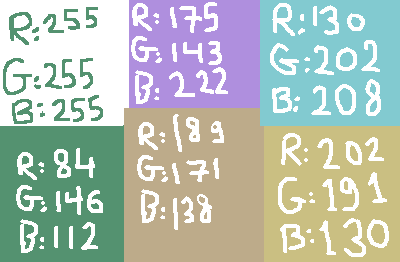 R:255
G:255
B:255
R:175
G:143
B:222
R:130
G:202
B:208
R:84
G:146
B:112
R:189
G:171
B:138
R:202
G:191
B:130